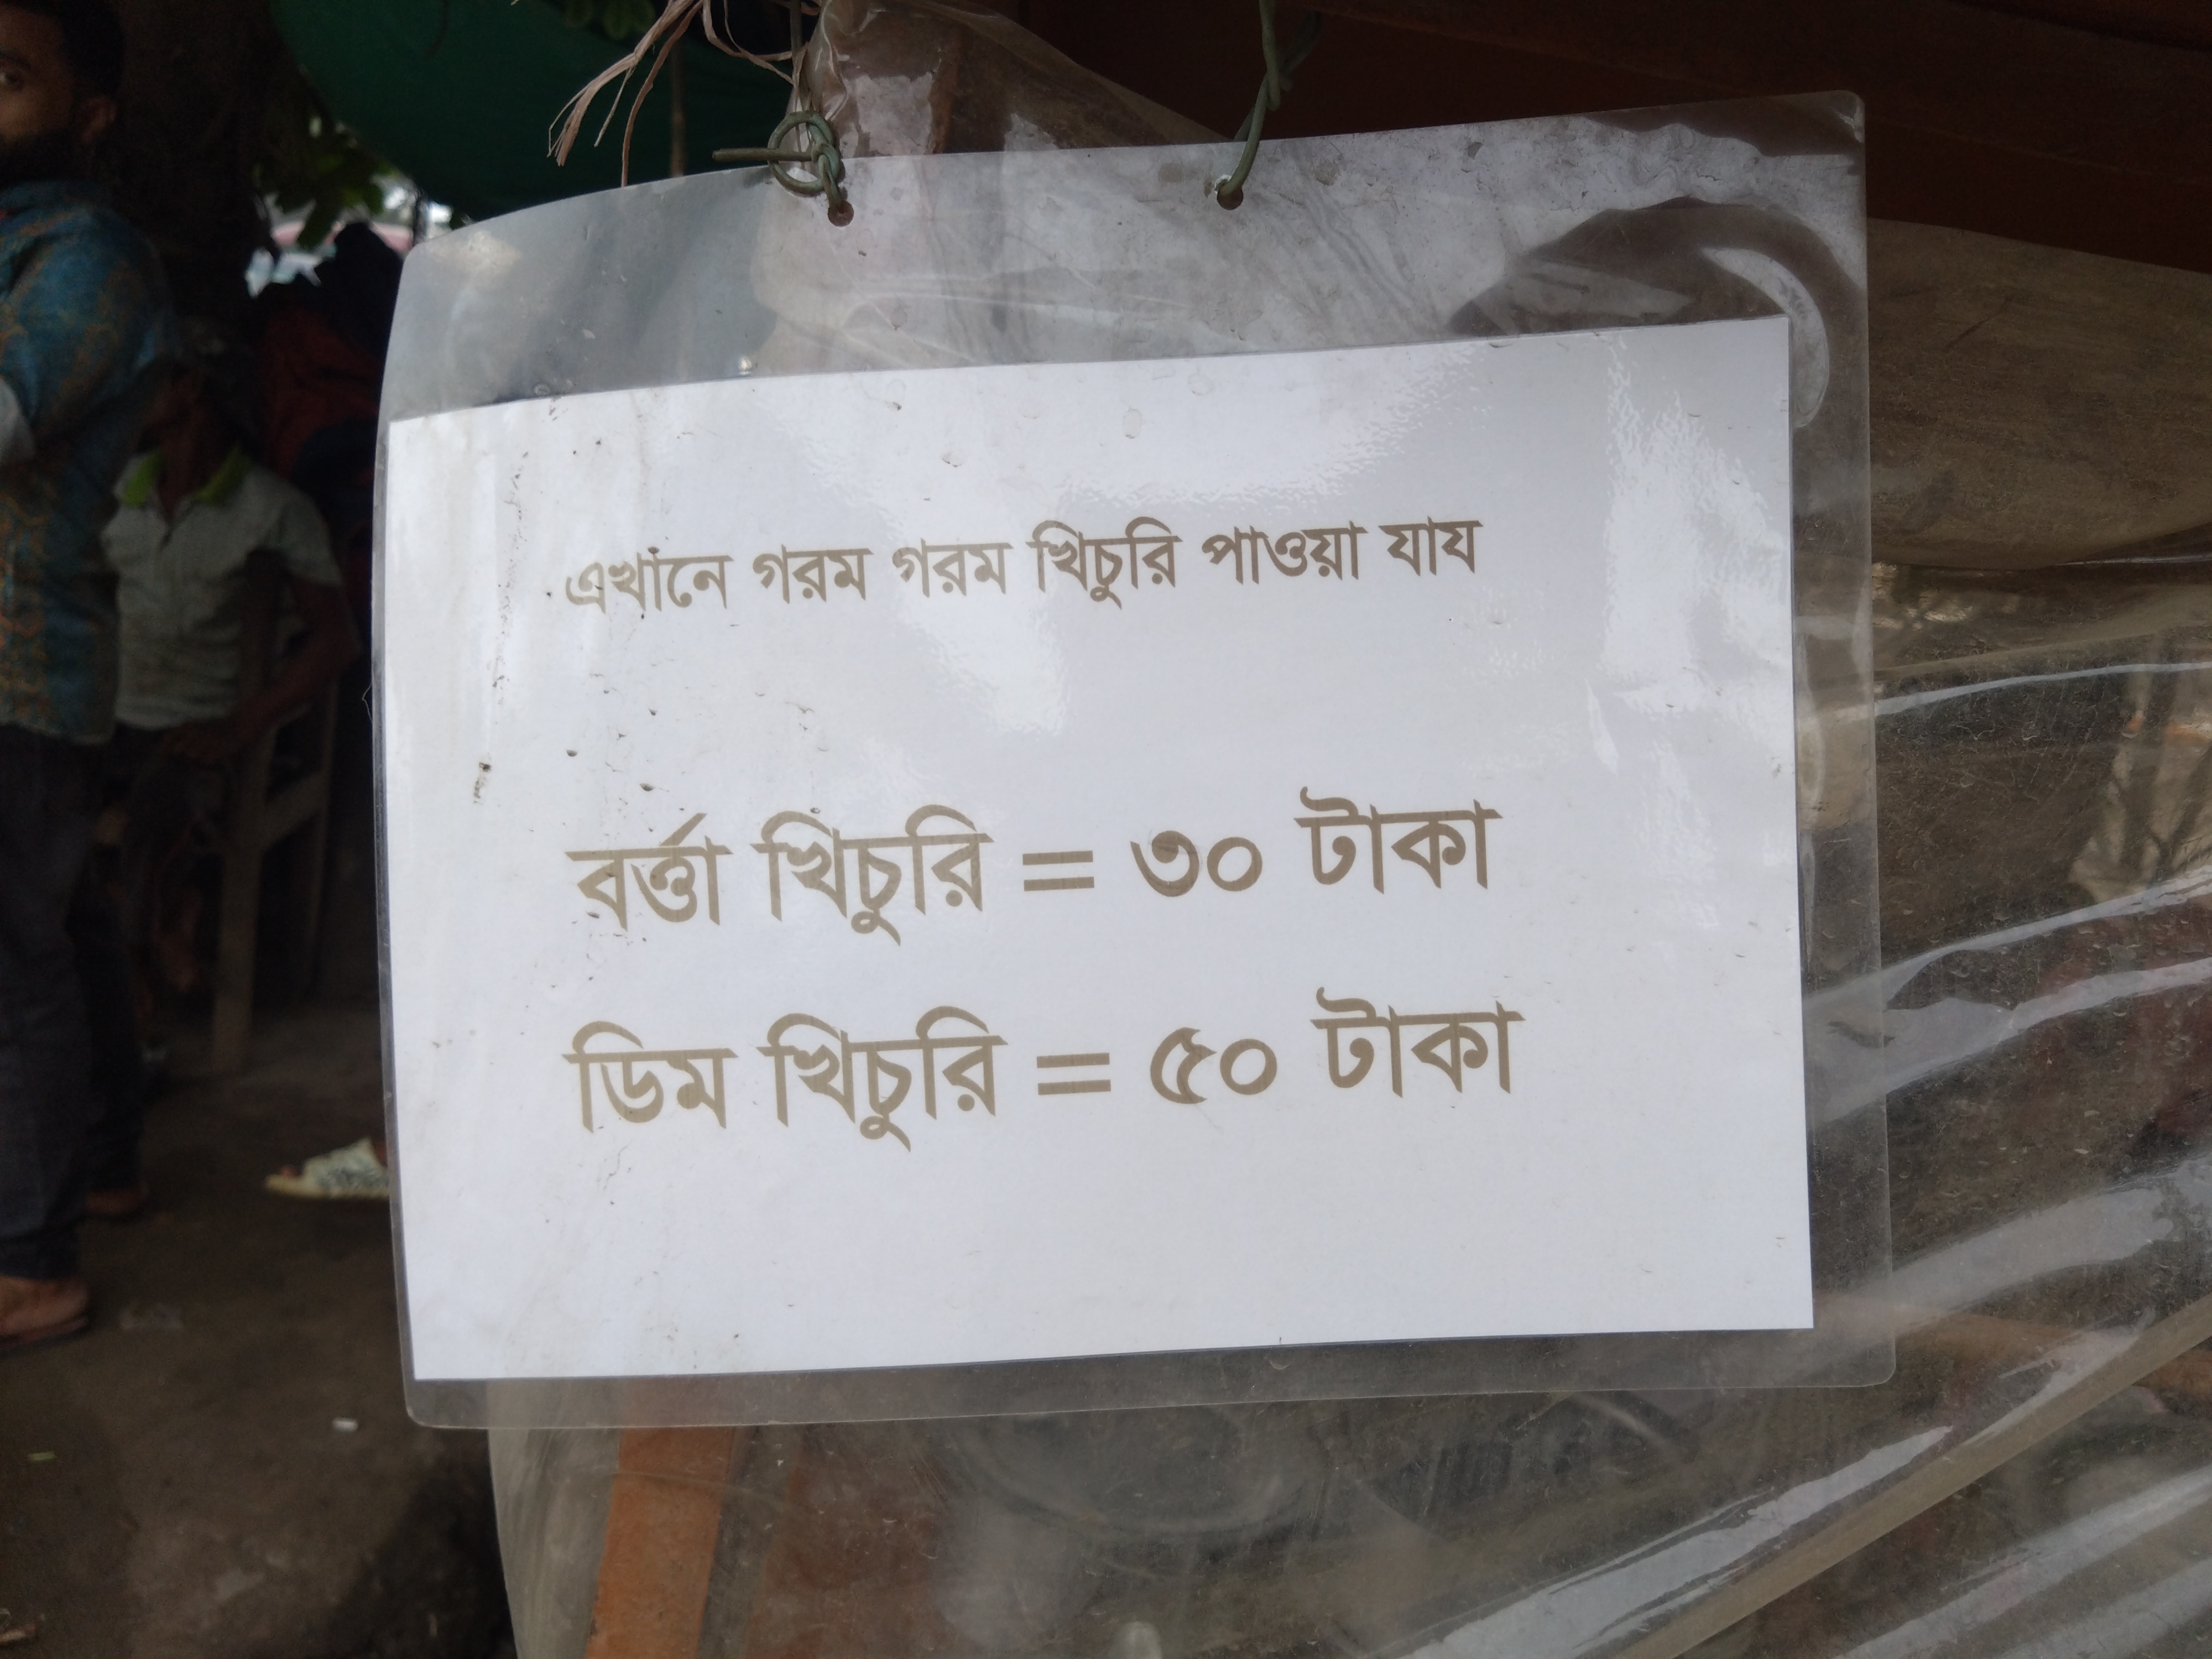 এখানে গরম গরম খিচুরি পাওয়া যায
বর্ত্তা খিচুরি = ৩০ টাকা
ডিম খিচুরি = ৫০ টাকা